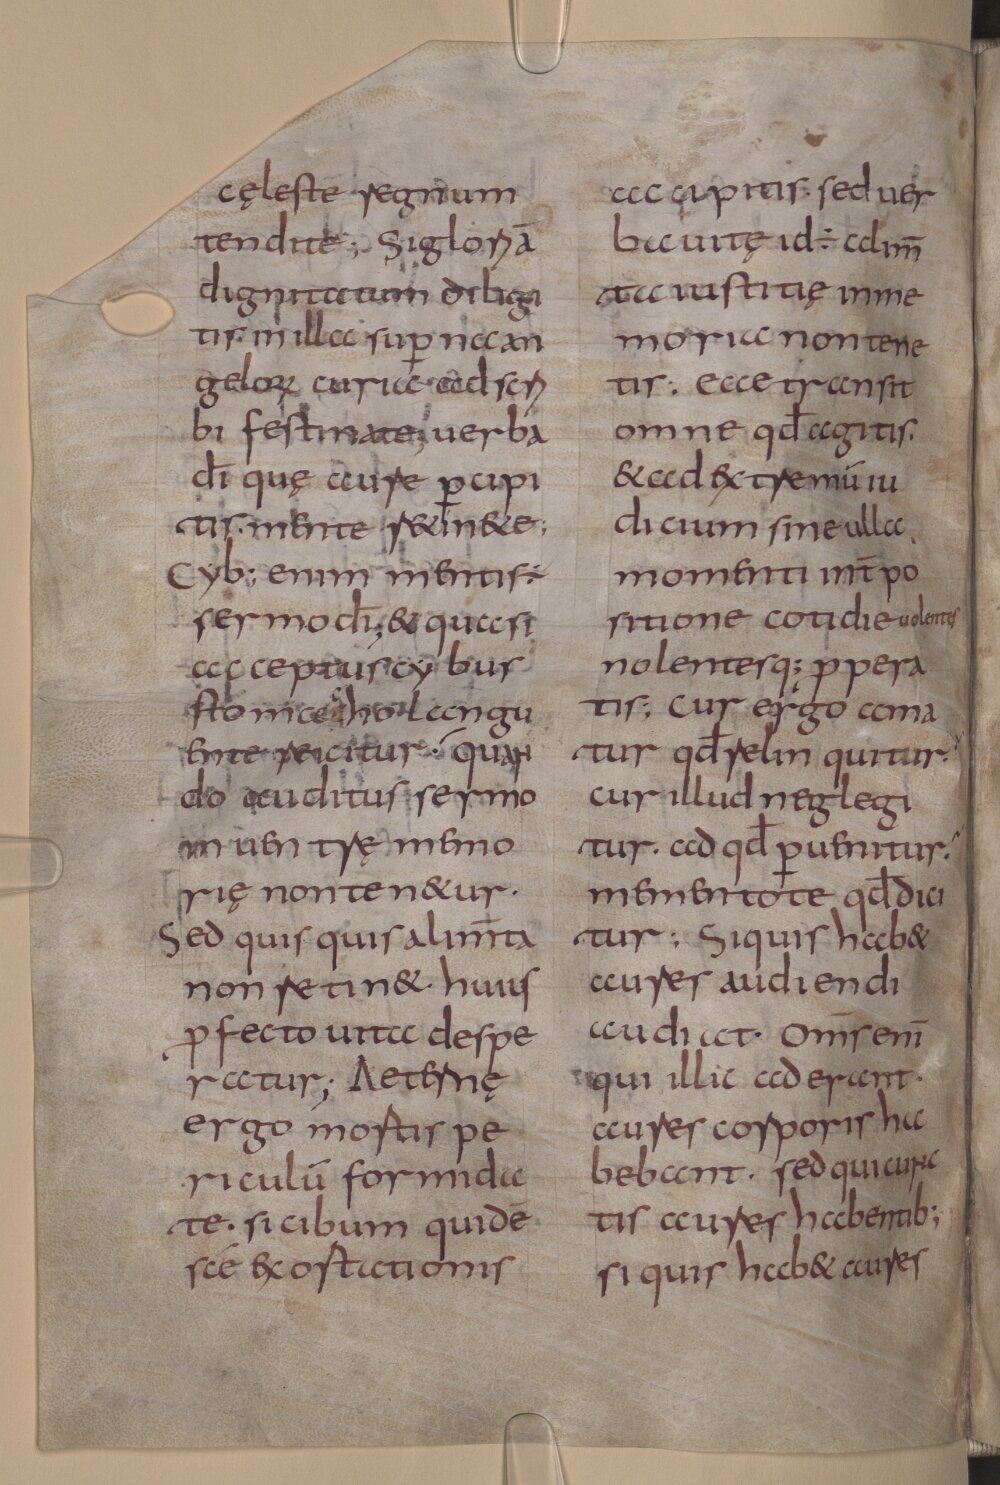 cęleste regnum
tendite; Si gloriā
dignitatum diligi
tis. in illa sup̄na an
geloꝝ curia adscri
bi festinate; uerba
dī quę aure ꝑcipi
tis. mente retinete;
Cyb; enim mentis:
sermo dī; & quasi
acceptus cybus
stomacho languente
ente reicitur. quan
do auditus sermo
in uentrę memo
rię non ten&ur.
Sed quisquis alim̄ta
non retin&. huius
ꝓfecto uita despe
ratur; Aeternę
ergo mortis pe
riculū formida
te. si cibum quidē
scē exortationis
accipitis. sed uer
ba uitę id: alim̄
ta iustitię in me
moria non tene
tis; ecce transit
omne qđ agitis.
& ad extremū iu
dicium sine ulla
momenti int̄po
sitione cotidie uolentes
nolentesq; ꝓpera
tis; Cur ergo ama
tur qđ relinquitur.
cur illud neglegi
tur. ad qđ ꝑuenitur.
mementote qđ dici
tur; Si quis hab&
aures audiendi
audiat. Om̄s enī
qui illic aderant.
aures corporis ha
bebant. sed qui cunc
tis aures habentib;
si quis hab& aures